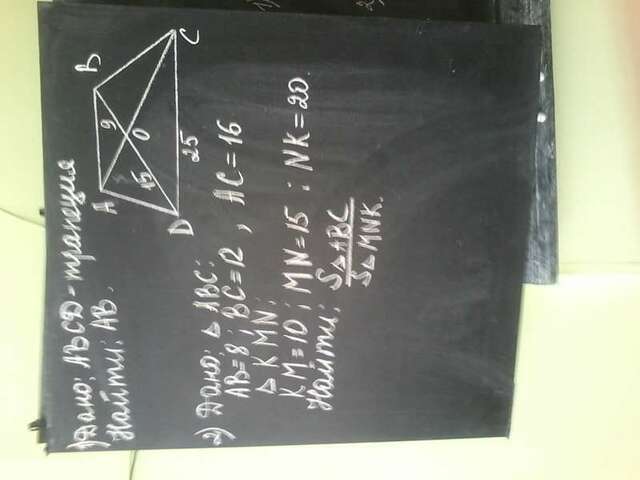 1) Дано: ABCD-трапеция
Найти: AB.
A
B
9
15
O
D
C
25
2) Дано: △ ABC:
AB=8 ; BC=12 , AC=16
△ KMN:
KM=10 ; MN=15 ; NK=20.
Найти: S△ABC
S△MNK.